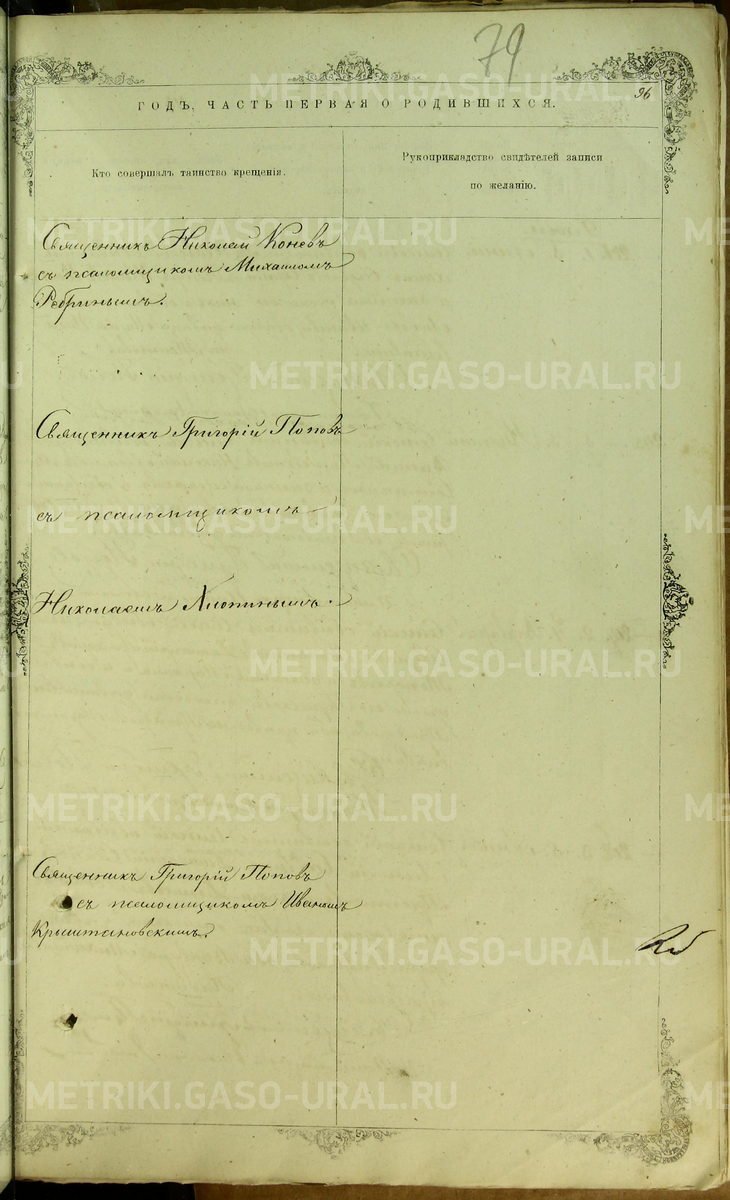 79
96
ГОДЪ, ЧАСТЬ ПЕРВАЯ О РОДИВШИХСЯ.
Кто совершалъ таинство крещенія.
Рукоприкладство свидѣтелей записи
по желанію.
Священникъ Николай Коневъ
съ псаломщикомъ Михаиломъ
Ребринымъ.
Священникъ Григорій Поповъ
съ псаломщикомъ
Николаемъ Хлопинымъ.
Священникъ Григорій Поповъ
съ псаломщикомъ Иваномъ
Крыштановскимъ.
METRIKI.GASO-URAL.RU